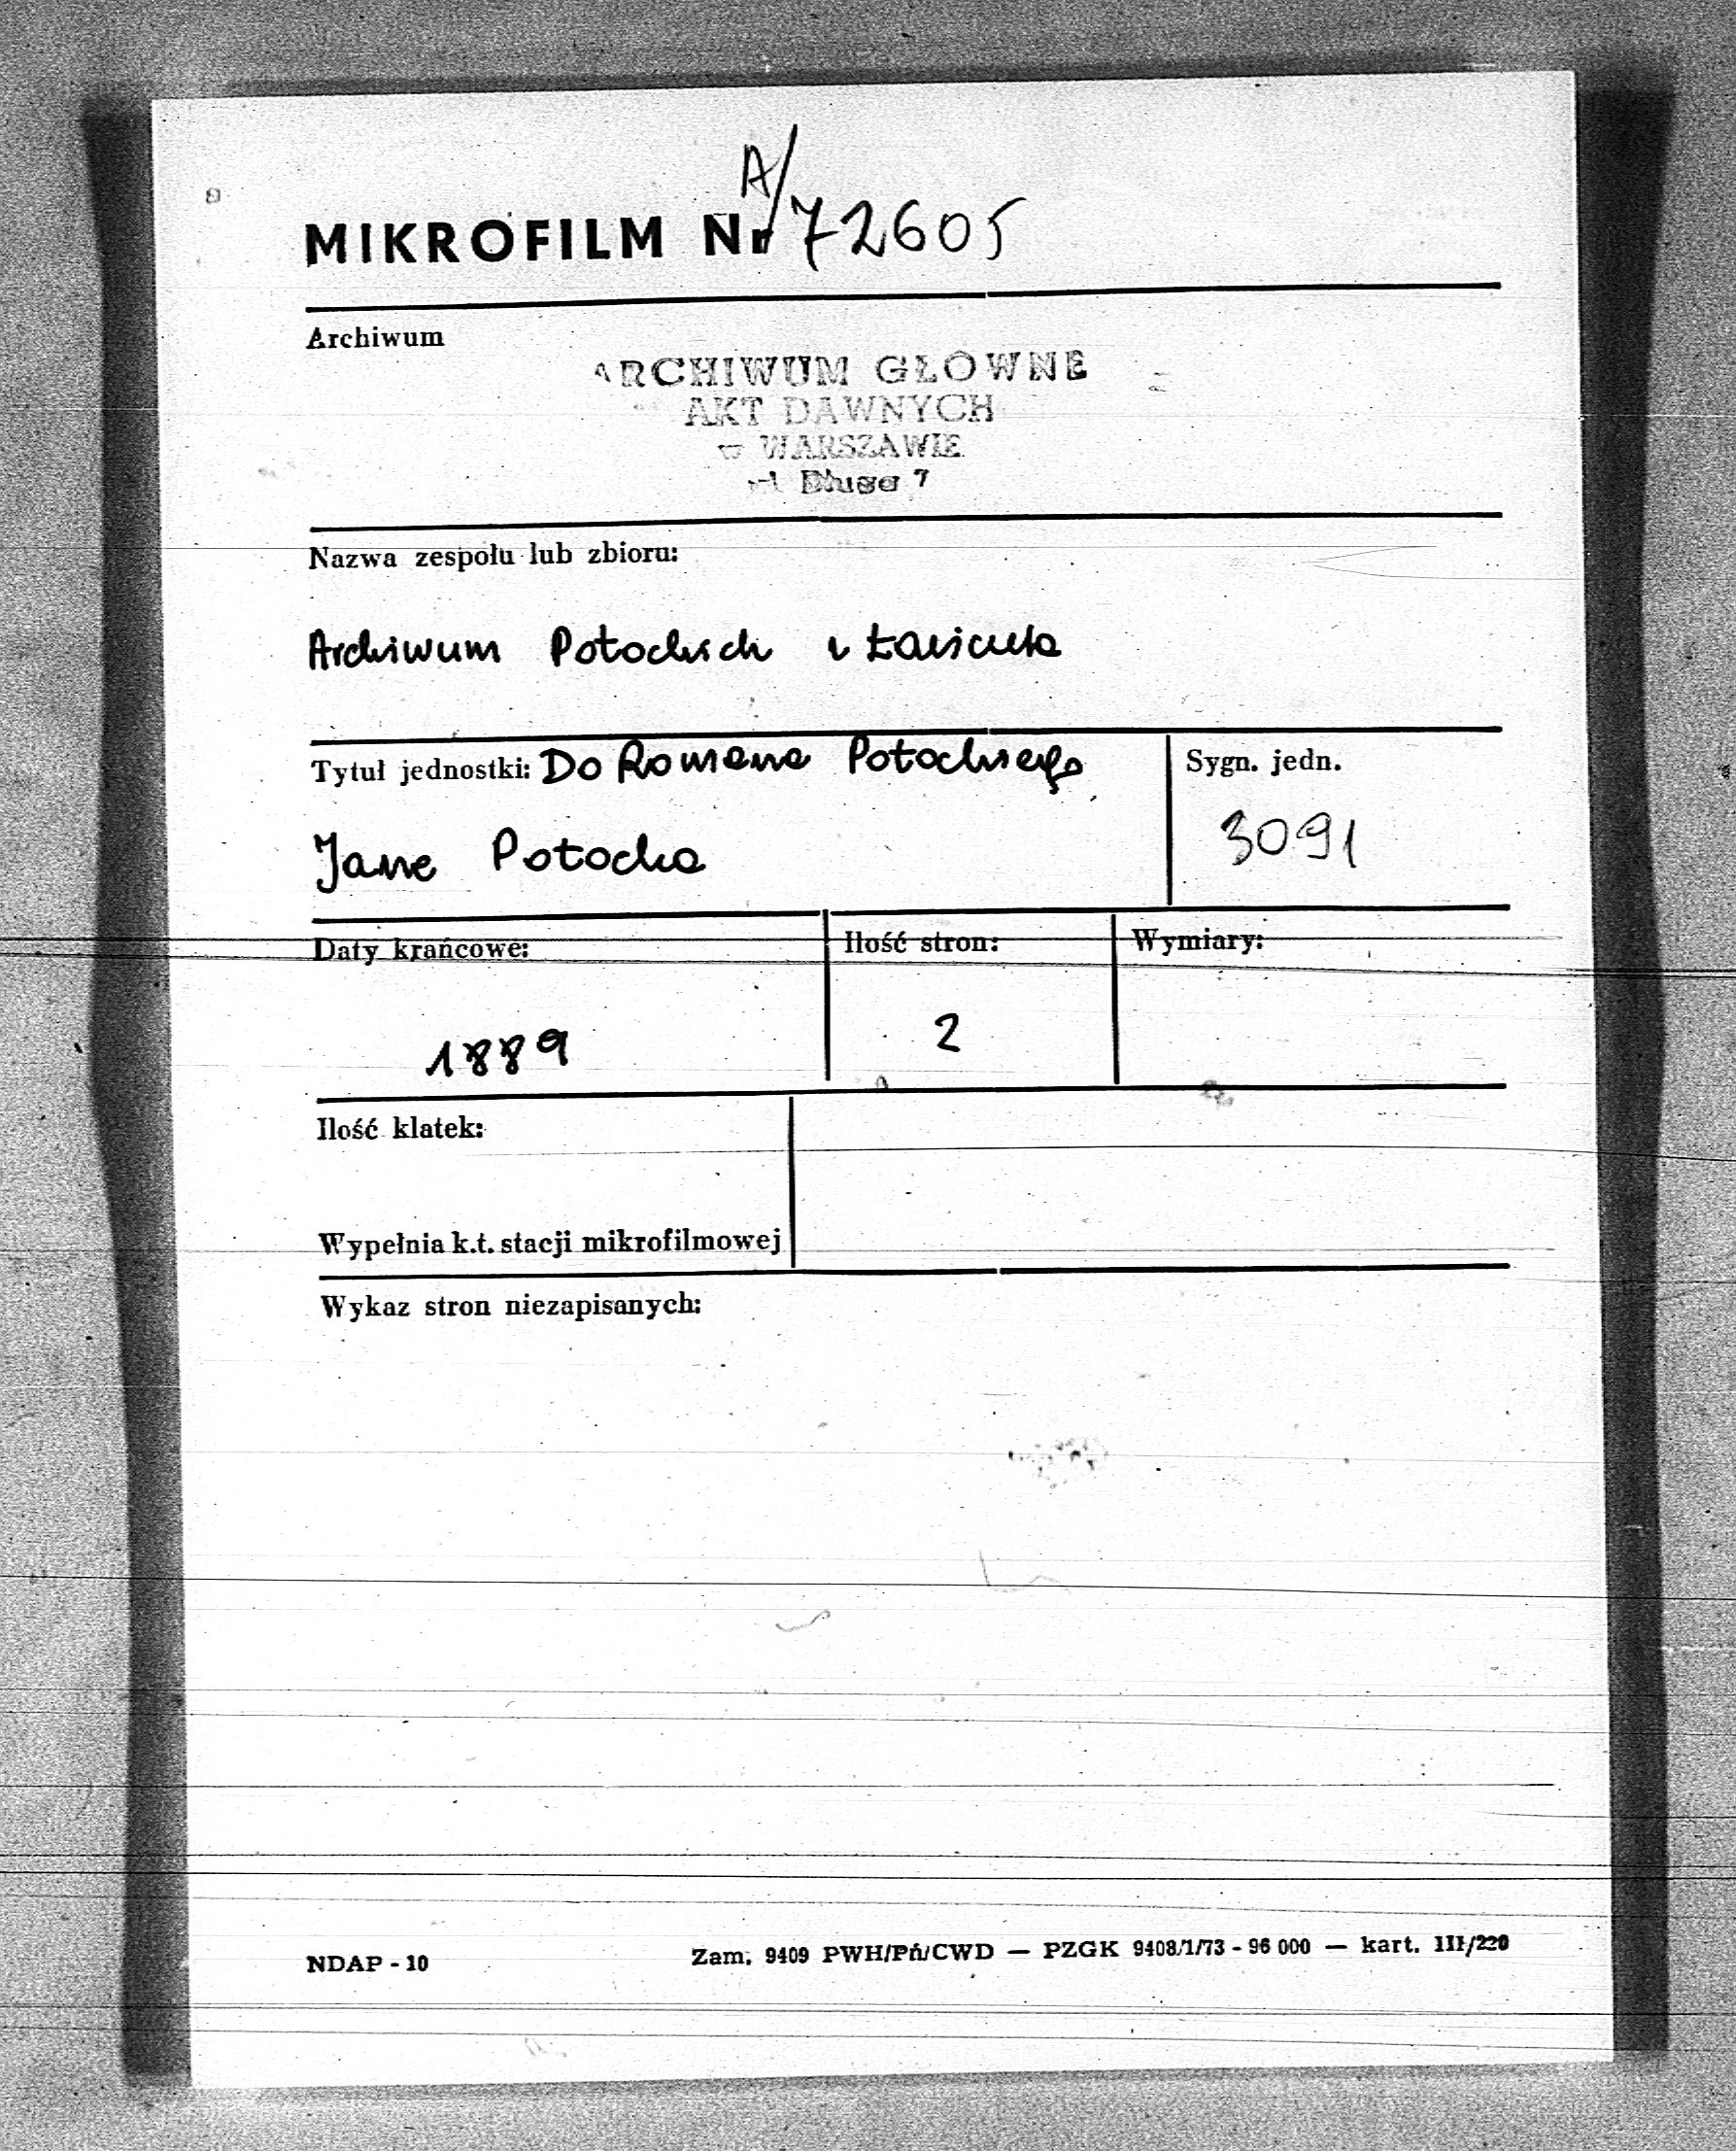 A/
MIKROFILM Nr 72605
Archiwum
ARCHIWUM GŁÓWNE
AKT DAWNYCH
w WARSZAWIE
ul. Długa 7
Nazwa zespołu lub zbioru:
Archiwum Potockich z Łańcuta
Tytuł jednostki: Do Romana Potockiego
Jana Potocka
Sygn. jedn.
3091
Daty krańcowe:
1889
Ilość stron:
2
Wymiary:
Ilość klatek:
Wypełnia k.t. stacji mikrofilmowej
Wykaz stron niezapisanych:
NDAP - 10
Zam. 9409 PWH/Pń/CWD — PZGK 9408/1/73 - 96 000 — kart. III/220